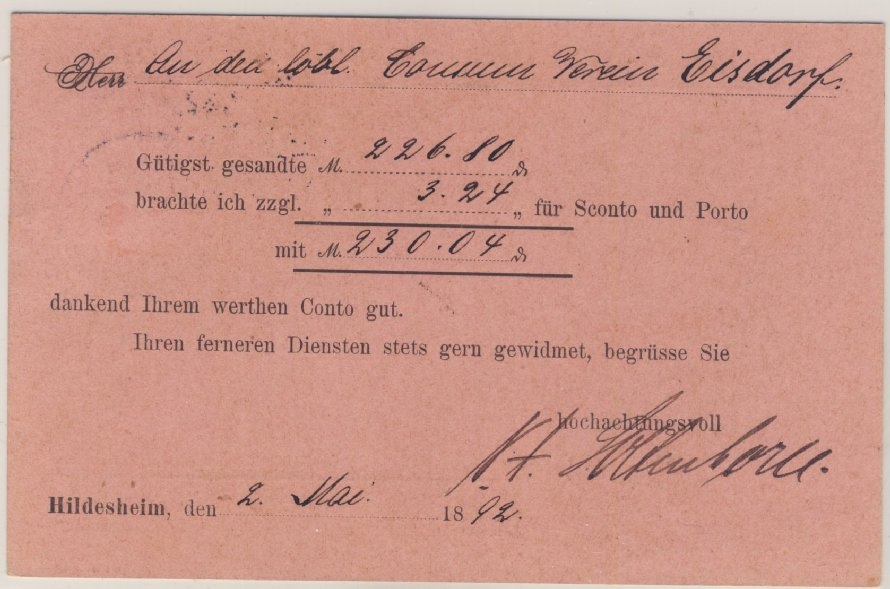 Herr An den löbl. Consum Verein Eisdorf.
Gütigst gesandte M. 226.80 ₰
brachte ich zzgl. „ 3.24 „ für Sconto und Porto
mit M. 230.04 ₰
dankend Ihrem werthen Conto gut.
Ihren ferneren Diensten stets gern gewidmet, begrüsse Sie
hochachtungsvoll
Hildesheim, den 2. Mai. 1892.